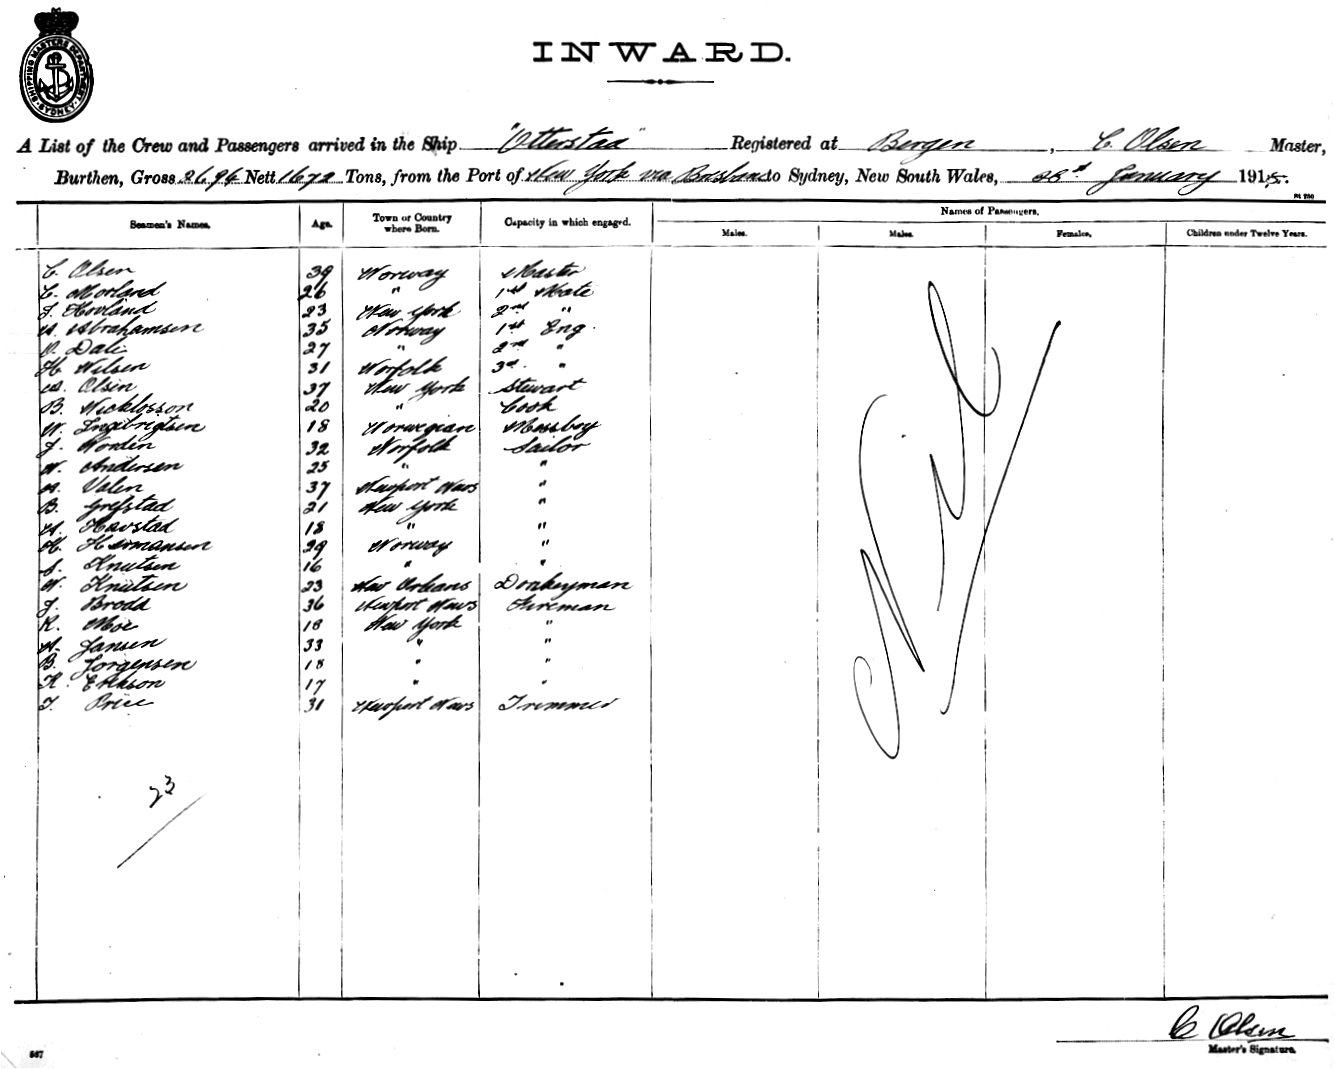 SHIPPING MASTERS DEPARTMENT SYDNEY
INWARD.
A List of the Crew and Passengers arrived in the Ship "Otterstad" Registered at Bergen, C. Olsen Master,
Burthen, Gross 2694 Nett 1672 Tons, from the Port of New York via Brisbane to Sydney, New South Wales, 28th January 1915.
Seamen's Names. Age. Town or Country where Born. Capacity in which engaged. Names of Passengers.
Males. Males. Females. Children under Twelve Years.
C. Olsen 39 Norway Master
C. Morland 26 " 1st Mate
J. Hovland 23 New York 2nd "
A. Abrahamsen 35 Norway 1st Eng.
O. Dale 27 " 2nd "
H. Nilsen 31 Norfolk 3rd "
A. Olsen 37 New York Stewart
B. Nicklosson 20 " Cook
W. Ingebrigtsen 18 Norwegian Messboy
J. Norden 32 Norfolk Sailor
N. Andersen 25 " "
A. Valen 37 Newport News "
B. Grefstad 21 New York "
A. Havstad 18 " "
H. Hermansen 29 Norway "
S. Knutsen 16 " "
N. Knutsen 23 New Orleans Donkeyman
J. Brodd 36 Newport News Fireman
R. Moe 18 New York "
A. Jansen 33 " "
B. Jorgensen 18 " "
K. Erikson 17 " "
T. Price 31 Newport News Trimmer
Nil
23
C Olsen
Master's Signature.